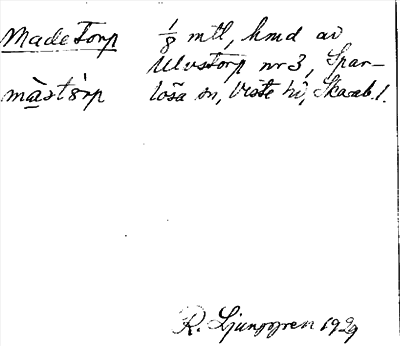 Madetorp 1/8 mtl, hmd av
Ulvstorp nr 3, Spar-
màstörp lösa sn, Viste hd, Skarab. l.
R. Ljunggren 1929